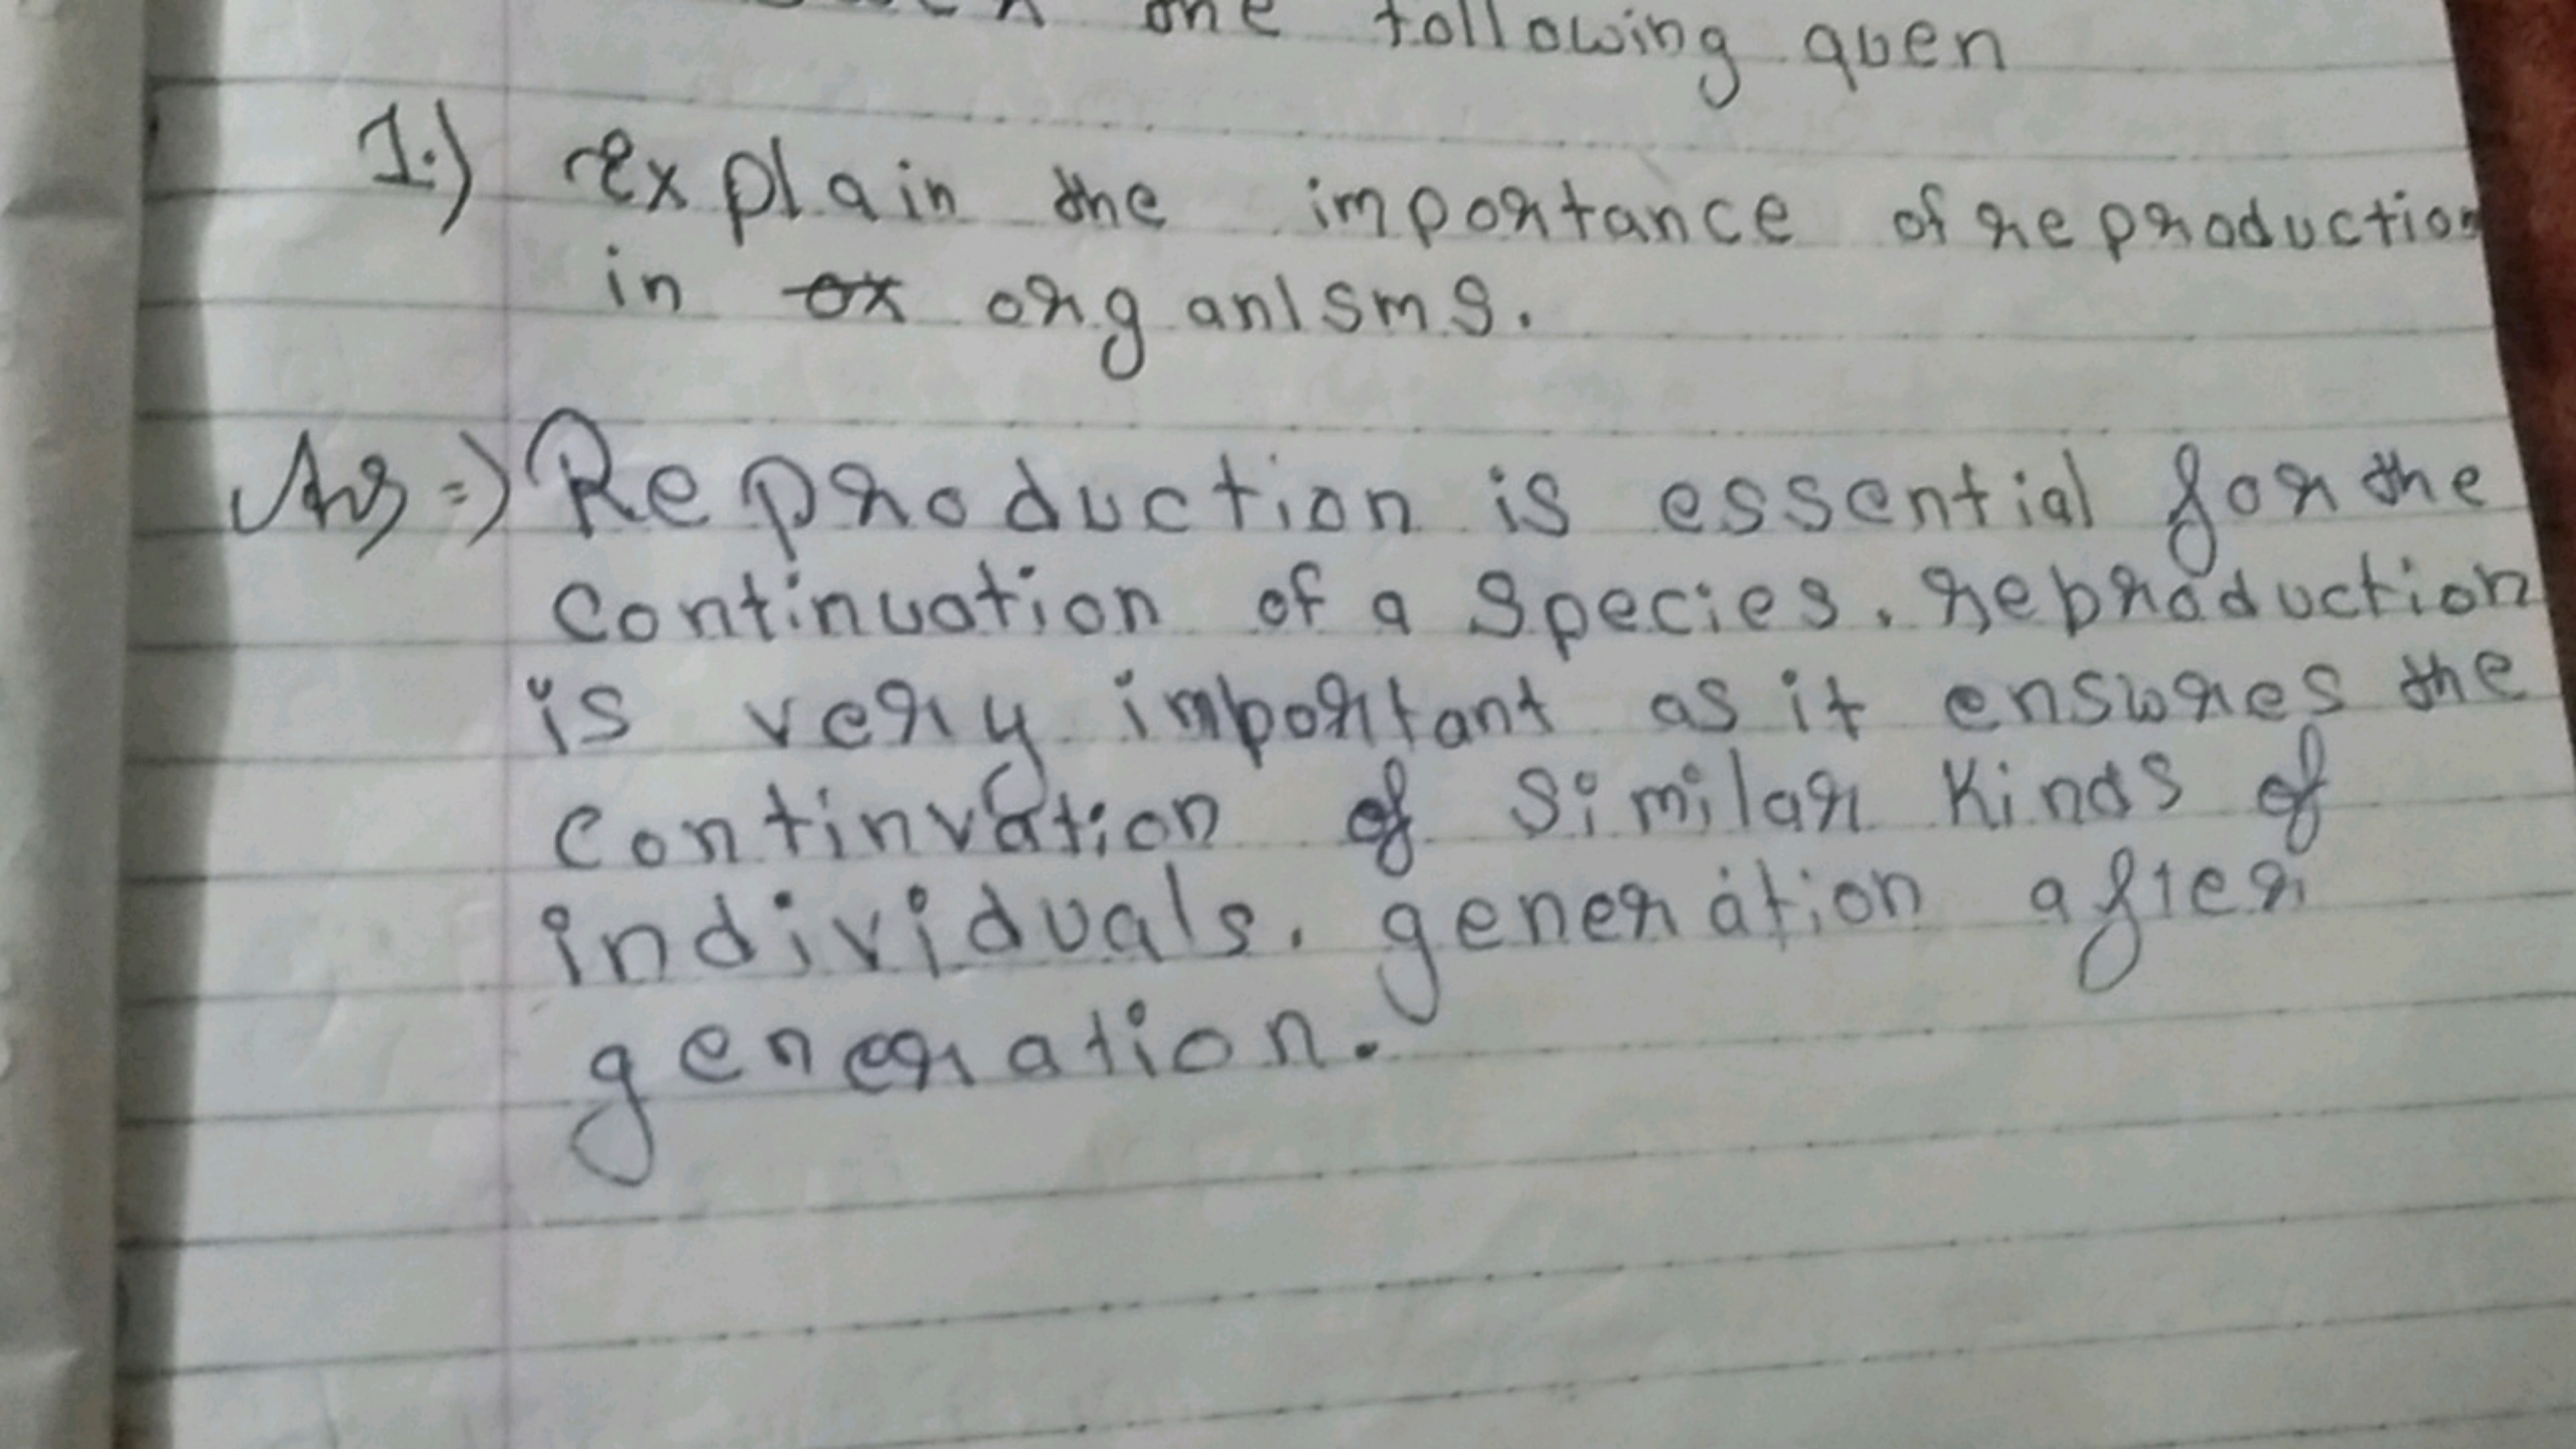 the following quen
1.) explain the importance of reproduction
in organisms.
Ans => Reproduction is essential for the
continuation of a species. reproduction
is very important as it ensures the
continuation of similar kinds of
individuals. generation after
generation.